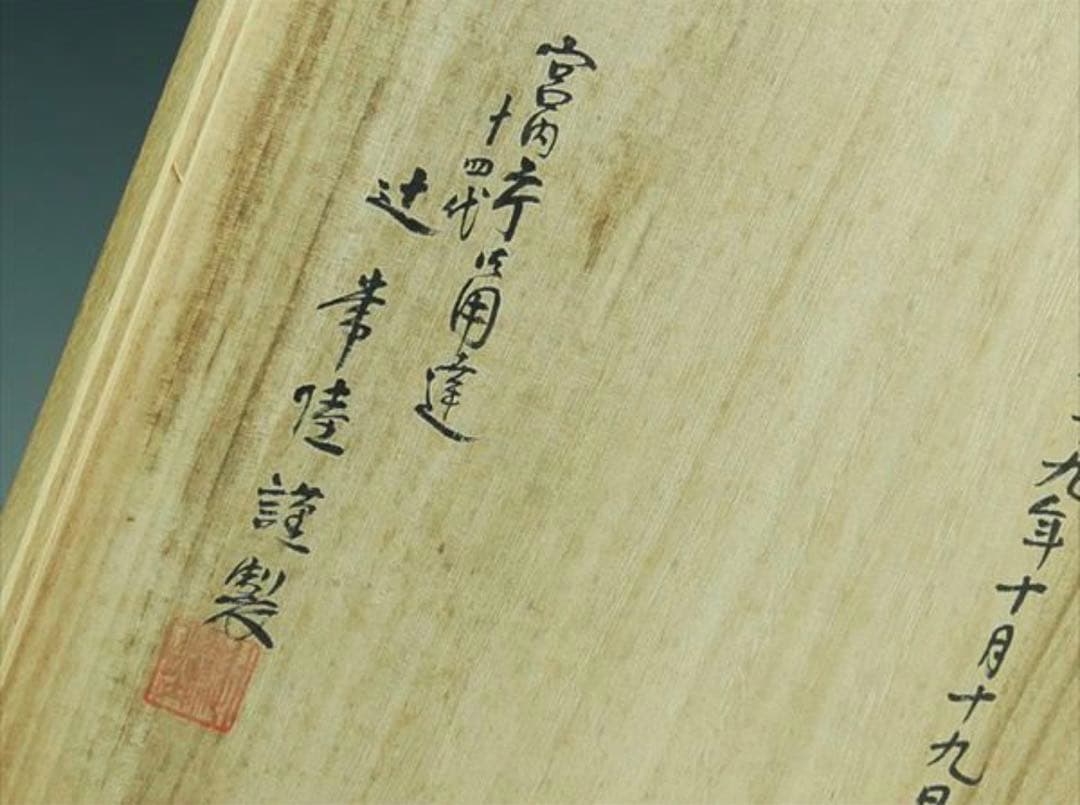 九年十月十九日
宮内庁御用達
十四代
辻常陸謹製